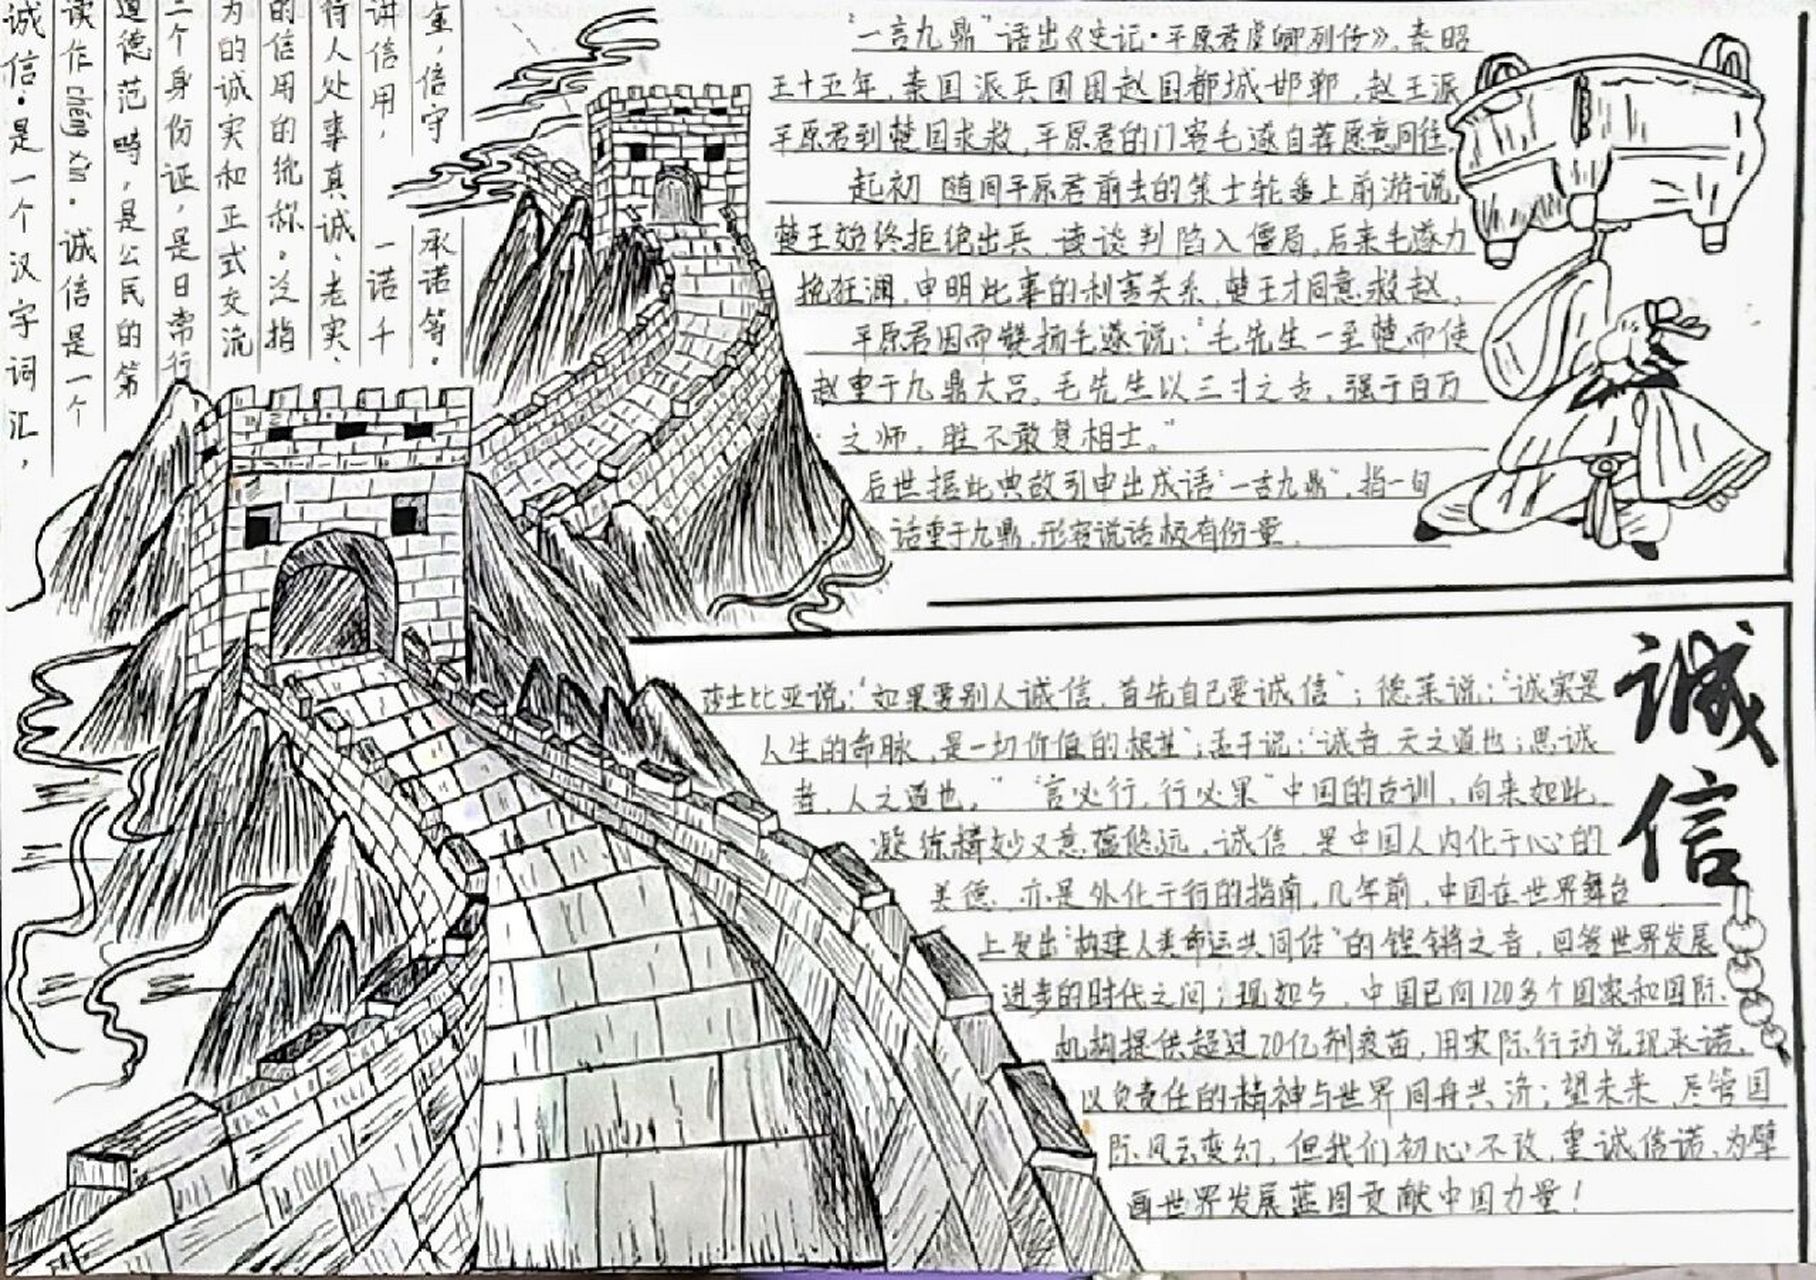 诚信,是一个汉字词汇,
读作chéng xìn。诚信是一个
道德范畴,是公民的第
二个身份证,是日常行
为的诚实和正式交流
的信用的统称。泛指
待人处事真诚、老实、
讲信用,一诺千
金,信守承诺等。
“一言九鼎”语出《史记·平原君虞卿列传》。秦昭
王十五年,秦国派兵围困赵国都城邯郸,赵王派
平原君到楚国求救,平原君的门客毛遂自荐愿意同往。
起初 随同平原君前去的策士轮番上前游说,
楚王始终拒绝出兵,谈判陷入僵局,后来毛遂力
挽狂澜,申明此事的利害关系,楚王才同意救赵。
平原君因而赞扬毛遂说:“毛先生一至楚而使
赵重于九鼎大吕。毛先生以三寸之舌,强于百万
之师。胜不敢复相士。”
后世据此典故引申出成语“一言九鼎”,指一句
话重于九鼎,形容说话极有份量。
莎士比亚说:“如果要别人诚信,首先自己要诚信”;德莱说:“诚实是
人生的命脉,是一切价值的根基”;孟子说:“诚者,天之道也;思诚
者,人之道也。” “言必行,行必果”中国的古训,向来如此,
凝练精妙又意蕴悠远。诚信,是中国人内化于心的
美德,亦是外化于行的指南,几年前,中国在世界舞台
上发出“构建人类命运共同体”的铿锵之音,回答世界发展
进步的时代之问;现如今,中国已向120多个国家和国际
机构提供超过20亿剂疫苗,用实际行动兑现承诺,
以负责任的精神与世界同舟共济;望未来,尽管国
际风云变幻,但我们初心不改,重诚信诺,为擘
画世界发展蓝图贡献中国力量!
诚
信